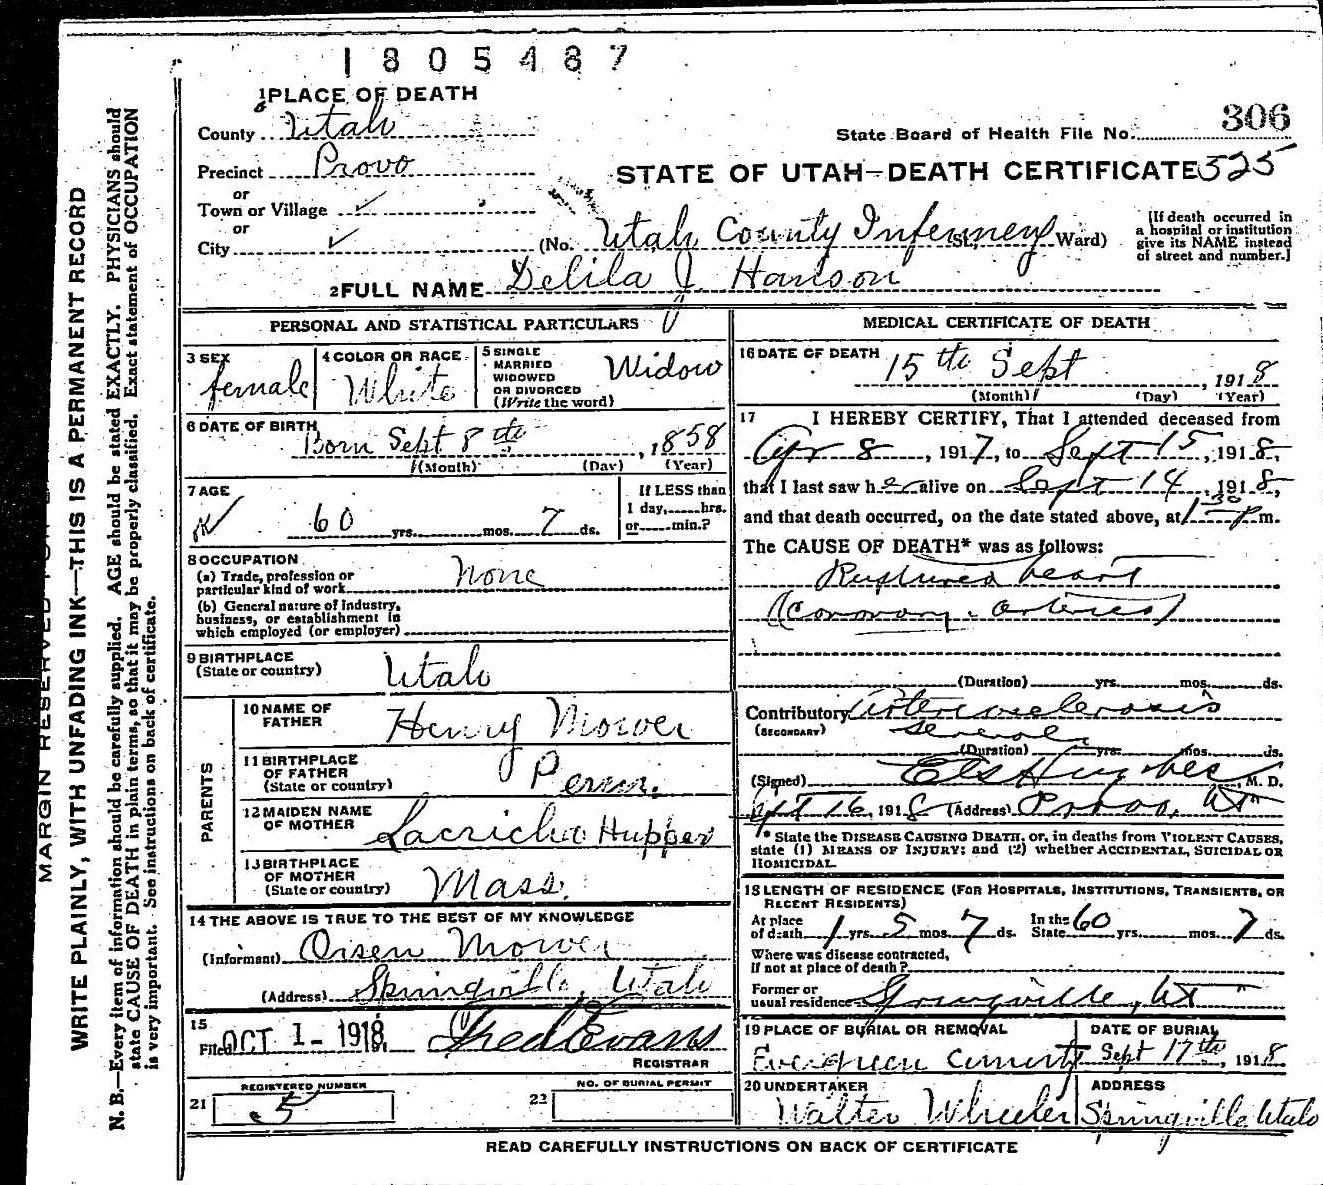 1805487
1 PLACE OF DEATH
County Utah
Precinct Provo
or
Town or Village ✓
or
City ✓
State Board of Health File No. 306
STATE OF UTAH—DEATH CERTIFICATE 325
(No. Utah County Infermey St. Ward)
[If death occurred in
a hospital or institution
give its NAME instead
of street and number.]
2 FULL NAME Delila J. Hanson
PERSONAL AND STATISTICAL PARTICULARS
3 SEX
female
4 COLOR OR RACE
White
5 SINGLE
MARRIED
WIDOWED
OR DIVORCED
(Write the word)
Widow
6 DATE OF BIRTH
Born Sept 8th, 1858
(Month) (Day) (Year)
7 AGE
60 yrs. mos. 7 ds.
If LESS than
1 day, hrs.
or min.?
8 OCCUPATION
(a) Trade, profession or
particular kind of work None
(b) General nature of industry,
business, or establishment in
which employed (or employer)
9 BIRTHPLACE
(State or country) Utah
PARENTS
10 NAME OF
FATHER Henry Mower
11 BIRTHPLACE
OF FATHER
(State or country) Penn.
12 MAIDEN NAME
OF MOTHER Hupper
13 BIRTHPLACE
OF MOTHER
(State or country) Mass.
14 THE ABOVE IS TRUE TO THE BEST OF MY KNOWLEDGE
(Informant) Orsen Mower
(Address) Springville, Utah
15
Filed OCT 1- 1918 Fred Evans
REGISTRAR
REGISTERED NUMBER
21 5
NO. OF BURIAL PERMIT
22
MEDICAL CERTIFICATE OF DEATH
16 DATE OF DEATH
15th Sept, 1918
(Month) (Day) (Year)
17 I HEREBY CERTIFY, That I attended deceased from
Apr 8, 1917, to Sept 15, 1918,
that I last saw her alive on Sept 14, 1918,
and that death occurred, on the date stated above, at 1 30 P m.
The CAUSE OF DEATH* was as follows:
Ruptured heart
(Coronary arteries)
(Duration) yrs. mos. ds.
Contributory Arteriosclerosis
(SECONDARY) several
(Duration) yrs. mos. ds.
(Signed) Hughes M. D.
Sept 16, 1918 (Address) Provo, Ut
* State the DISEASE CAUSING DEATH, or, in deaths from VIOLENT CAUSES,
state (1) MEANS OF INJURY; and (2) whether ACCIDENTAL, SUICIDAL OR
HOMICIDAL.
18 LENGTH OF RESIDENCE (FOR HOSPITALS, INSTITUTIONS, TRANSIENTS, OR
RECENT RESIDENTS)
At place
of death 1 yrs. 5 mos. 7 ds.
In the
State 60 yrs. mos. 7 ds.
Where was disease contracted,
if not at place of death?
Former or
usual residence Springville, Ut
19 PLACE OF BURIAL OR REMOVAL
Evergreen
DATE OF BURIAL
Sept 17th, 1918
20 UNDERTAKER
Walter Wheeler
ADDRESS
Springville Utah
READ CAREFULLY INSTRUCTIONS ON BACK OF CERTIFICATE
MARGIN RESERVED FOR
WRITE PLAINLY, WITH UNFADING INK—THIS IS A PERMANENT RECORD
N. B.—Every item of information should be carefully supplied. AGE should be stated EXACTLY. PHYSICIANS should
state CAUSE OF DEATH in plain terms, so that it may be properly classified. Exact statement of OCCUPATION
is very important. See instructions on back of certificate.